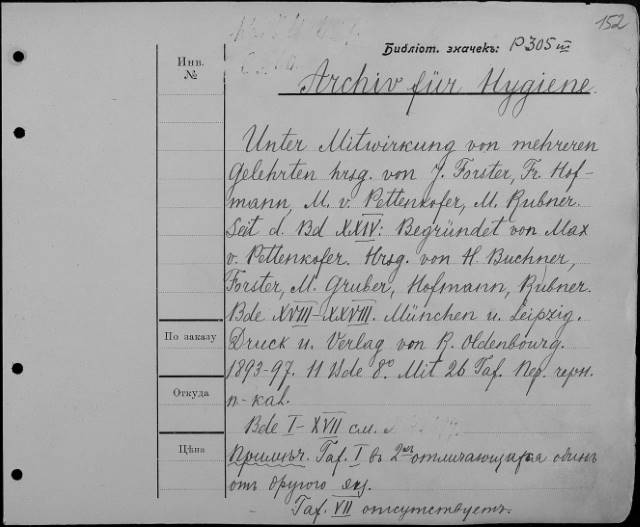 152
Библіот. значекъ: P 305 III
Инв. №
Archiv für Hygiene.
Unter Mitwirkung von mehreren
Gelehrten hrsg. von J. Forster, Fr. Hof-
mann, M. v. Pettenkofer, M. Rubner.
Seit d. Bd XXIV: Begründet von Max
v. Pettenkofer. Hrsg. von H. Buchner,
Forster, M. Gruber, Hofmann, Rubner.
Bde XVIII-XXVIII. München u. Leipzig.
По заказу
Druck u. Verlag von R. Oldenbourg.
1893-97. 11 Bde 8°. Mit 26 Taf. Пер. черн.
Откуда
п-кал.
Bde I-XVII см.
Цѣна
Примѣч. Taf. I въ 2хъ отличающихся одинъ
отъ другого экз.
Taf. VII отсутствуетъ.